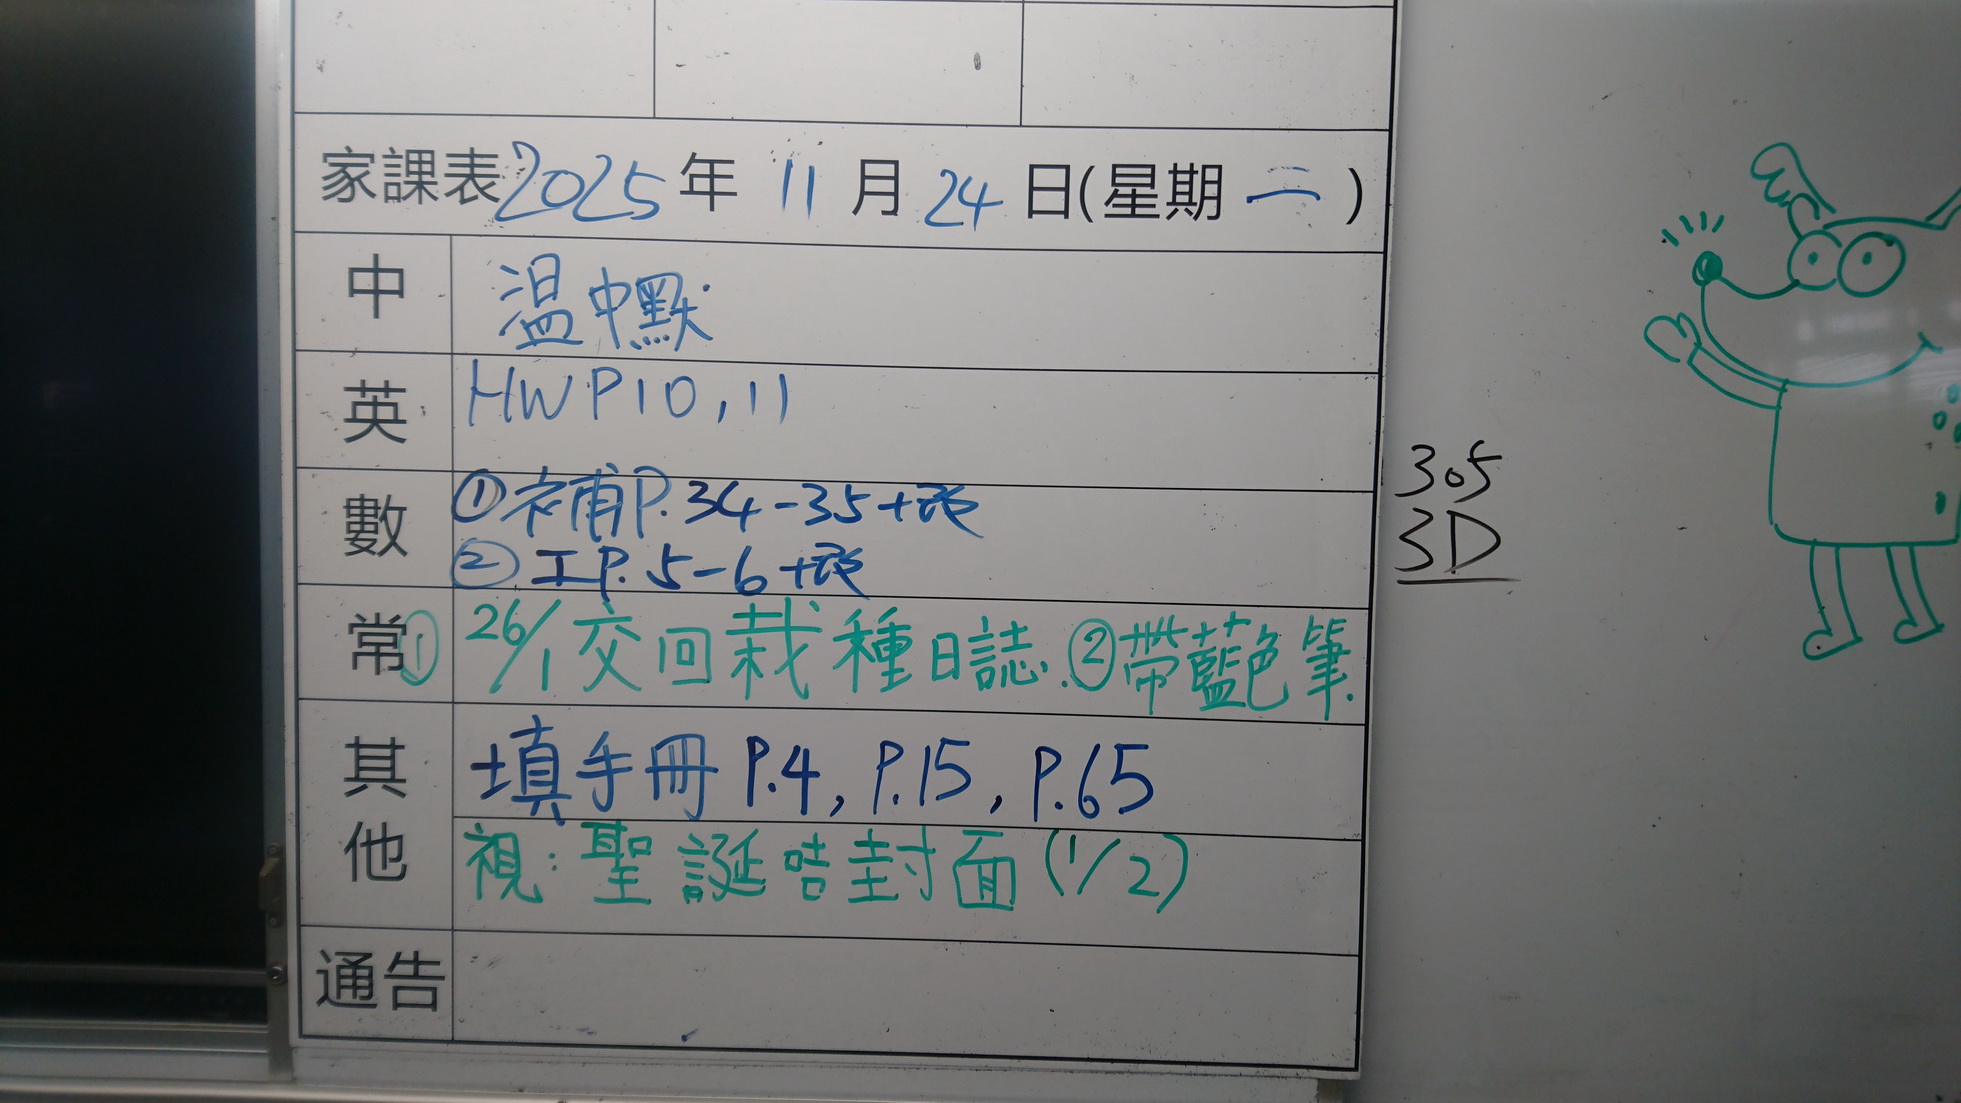 家課表2025年 11 月 24 日(星期 二 )
中 温中默
英 HW P10, 11
數 ① 補 P. 34-35+改
② 工 P. 5-6 +改
常 ① 26/1 交回栽種日誌. ② 帶藍色筆.
其他 填手冊 P.4, P.15, P.65
視: 聖誕咭封面 (1/2)
通告
305
3D